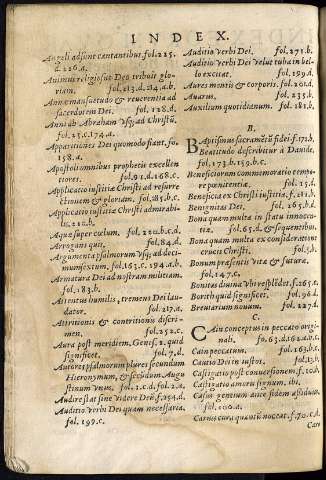 INDEX.
Angeli adsunt cantantibus. fol. 225.
d. 226. a.
Animus religiosus Deo tribuit glo-
riam. fol. 213. d. 214. a. b.
Annæ mansuetudo & reuerentia ad
sacerdotem Dei. fol. 128. d.
Anni ab Abraham vsq; ad Christū.
fol. 23. c. 174. a.
Apparitiones Dei quomodo fiant. fo.
158. a.
Apostoli omnibus prophetis excellen
tiores. fol. 91. d. 168. c.
Applicatio iustitiæ Christi ad resurre
ctionem & gloriam. fol. 185. b. c.
Applicatio iustitiæ Christi admirabi-
lis. 210. b.
Aquæ super cœlum. fol. 220. b. c. d.
Arrogans quis. fol. 84. d.
Argumenta psalmorum vsq; ad deci-
mum sextum. fol. 163. c. 194. a. b.
Armatura Dei ad nostram militiam.
fol. 183. b.
Attentus humilis, tremens Dei lau-
dator. fol. 217. a.
Attritionis & contritionis discri-
men. fol. 252. c.
Aura post meridiem, Genes. 2. quid
significet. fol. 7. d.
Autores psalmorum plures secundum
Hieronymum, & secūdum Augu
stinum vnus. fol. 1. c. d. fol. 2. a.
Audire stat sine videre Deū. f. 154. d.
Auditio verbi Dei quam necessaria.
fol. 199. c.
Auditio verbi Dei. fol. 271. b.
Auditio verbi Dei velut tuba in bel-
lo excitat. fol. 199. d.
Aures mentis & corporis. fol. 201. d.
Auarus. fol. 235. b.
Auxilium quotidianum. fol. 181. b.
B.
BAptismus sacramētū fidei. f. 172. b.
Beatitudo describitur à Dauide.
fol. 173. b. 159. b. c.
Beneficiorum commemoratio tempo-
re pœnitentiæ. fol. 15. d.
Beneficia ex Christi iustitia. f. 211. b.
Benignitas Dei. fol. 265. b. d.
Bona quam multa in statu innocen-
tiæ. fol. 65. d. & sequentibus.
Bona quam multa ex consideratione
crucis Christi. fol. 5. b.
Bonum præsentis vitæ & futuræ.
fol. 147. c.
Bonitas diuina vbi resplēdet. f. 265. c.
Borith quid significet. fol. 96. d.
Breuiarium nouum. fol. 227. d.
C.
CAin conceptus in peccato origi-
nali. fo. 63. d. 162. a. b. c.
Cain peccatum. fol. 163. b. c.
Cautio Dei in iustos. fol. 13. b.
Castigatio post conuersionem. f. 10. b. c
Castigatio amoris signum. ibi.
Casus gentium ante fidem assiduus.
fol. 100. d.
Carnis cura quantū noceat. f. 70. b. c.
Cau